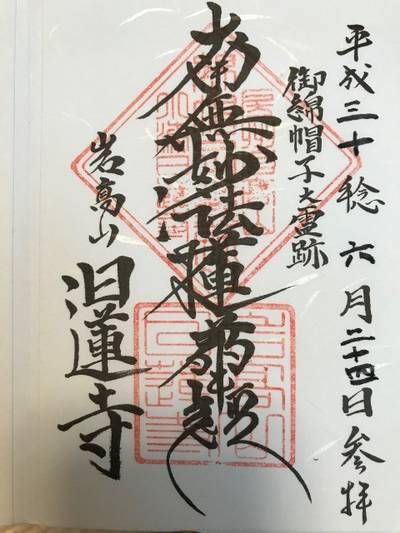 平成三十稔六月二十四日参拝
御綿帽子大霊跡
南無妙法蓮華経
岩高山
日蓮寺